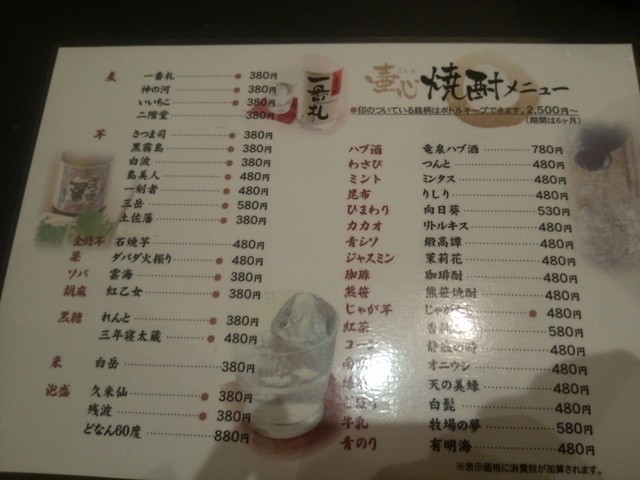 壷心 焼酎メニュー
●印のついている銘柄はボトルキープできます。2,500円～
(期間は6ヶ月)
麦 一番札 ● 380円
神の河 ● 380円
いいちこ ● 380円
二階堂 380円
芋 さつま司 ● 380円
黒霧島 ● 380円
白波 ● 380円
島美人 ● 480円
一刻者 ● 480円
三岳 ● 580円
土佐藩 ● 380円
金時芋 石焼芋 480円
栗 ダバダ火振り ● 480円
ソバ 雲海 ● 380円
胡麻 紅乙女 ● 380円
黒糖 れんと ● 380円
三年寝太蔵 ● 480円
米 白岳 380円
泡盛 久米仙 ● 380円
残波 ● 380円
どなん60度 880円
一番札
ハブ酒 竜泉ハブ酒 780円
わさび つんと 480円
ミント ミンタス 480円
昆布 りしり 480円
ひまわり 向日葵 530円
カカオ リトルキス 480円
青シソ 鍛高譚 480円
ジャスミン 茉莉花 480円
珈琲 珈琲酎 480円
熊笹 熊笹焼酎 480円
じゃが芋 じゃが ● 480円
紅茶 580円
コーン 480円
オニウシ 480円
天の美緑 480円
白髭 480円
牛乳 牧場の夢 580円
青のり 有明海 480円
※表示価格に消費税が加算されます。